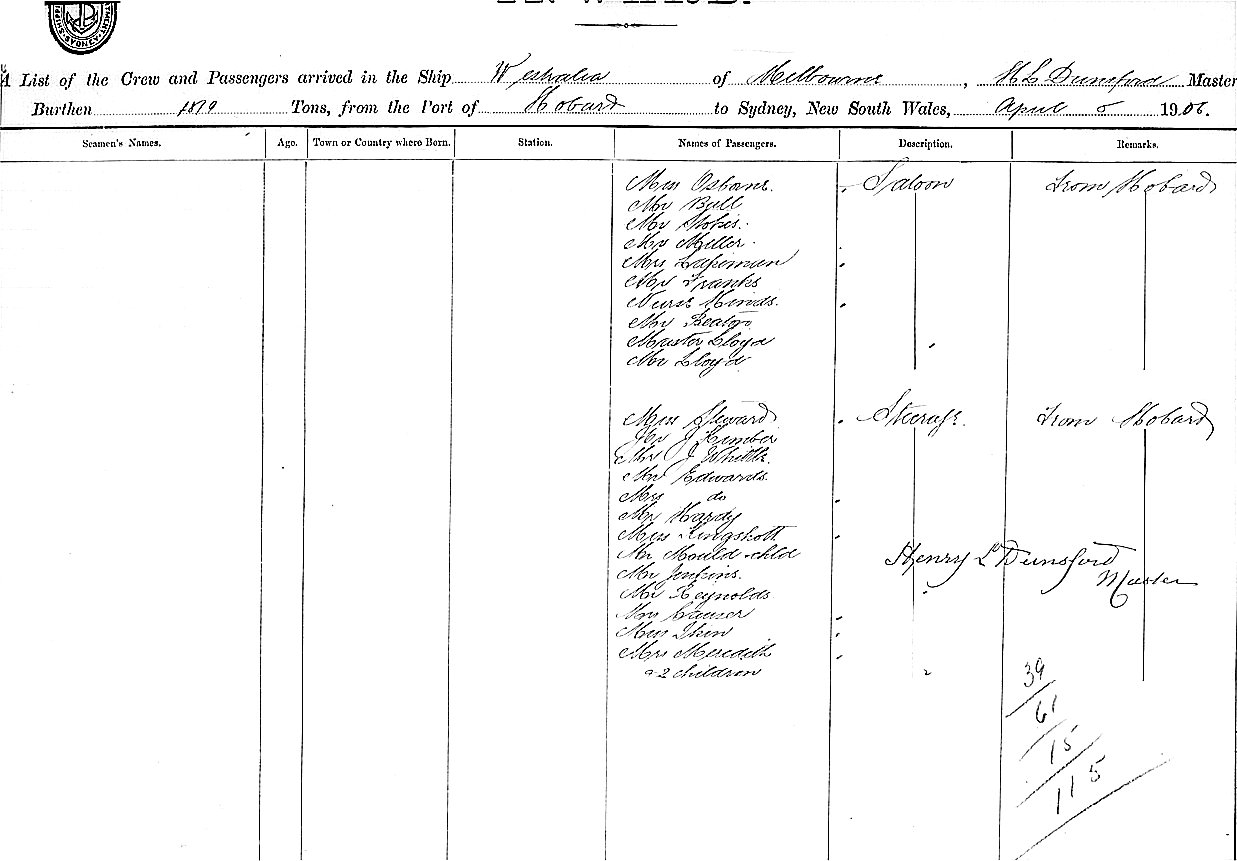 A List of the Crew and Passengers arrived in the Ship Westralia of Melbourne, H L Dunsford Master
Burthen 1879 Tons, from the Port of Hobard to Sydney, New South Wales, April 5 1906.
Seamen's Names. Age. Town or Country where Born. Station. Names of Passengers. Description. Remarks.
Miss Osborne. Saloon From Hobard
Mr Bull
Mr Stokes.
Mr Miller
Mrs
Mr Franks
Nurse Hinds.
Mr Beaton
Master Lloyd
Mr Lloyd
Miss Steward Steerage. From Hobard
Mr J Kimber
Mr J
Mr Edwards.
Mrs do
Mr Hardy
Miss Kingshott
Mr Mould & chld Henry L Dunsford
Mr Jenkins. Master
Mr Reynolds
Causer
Miss
Mrs Meredith
& 2 children
39
61
15
115